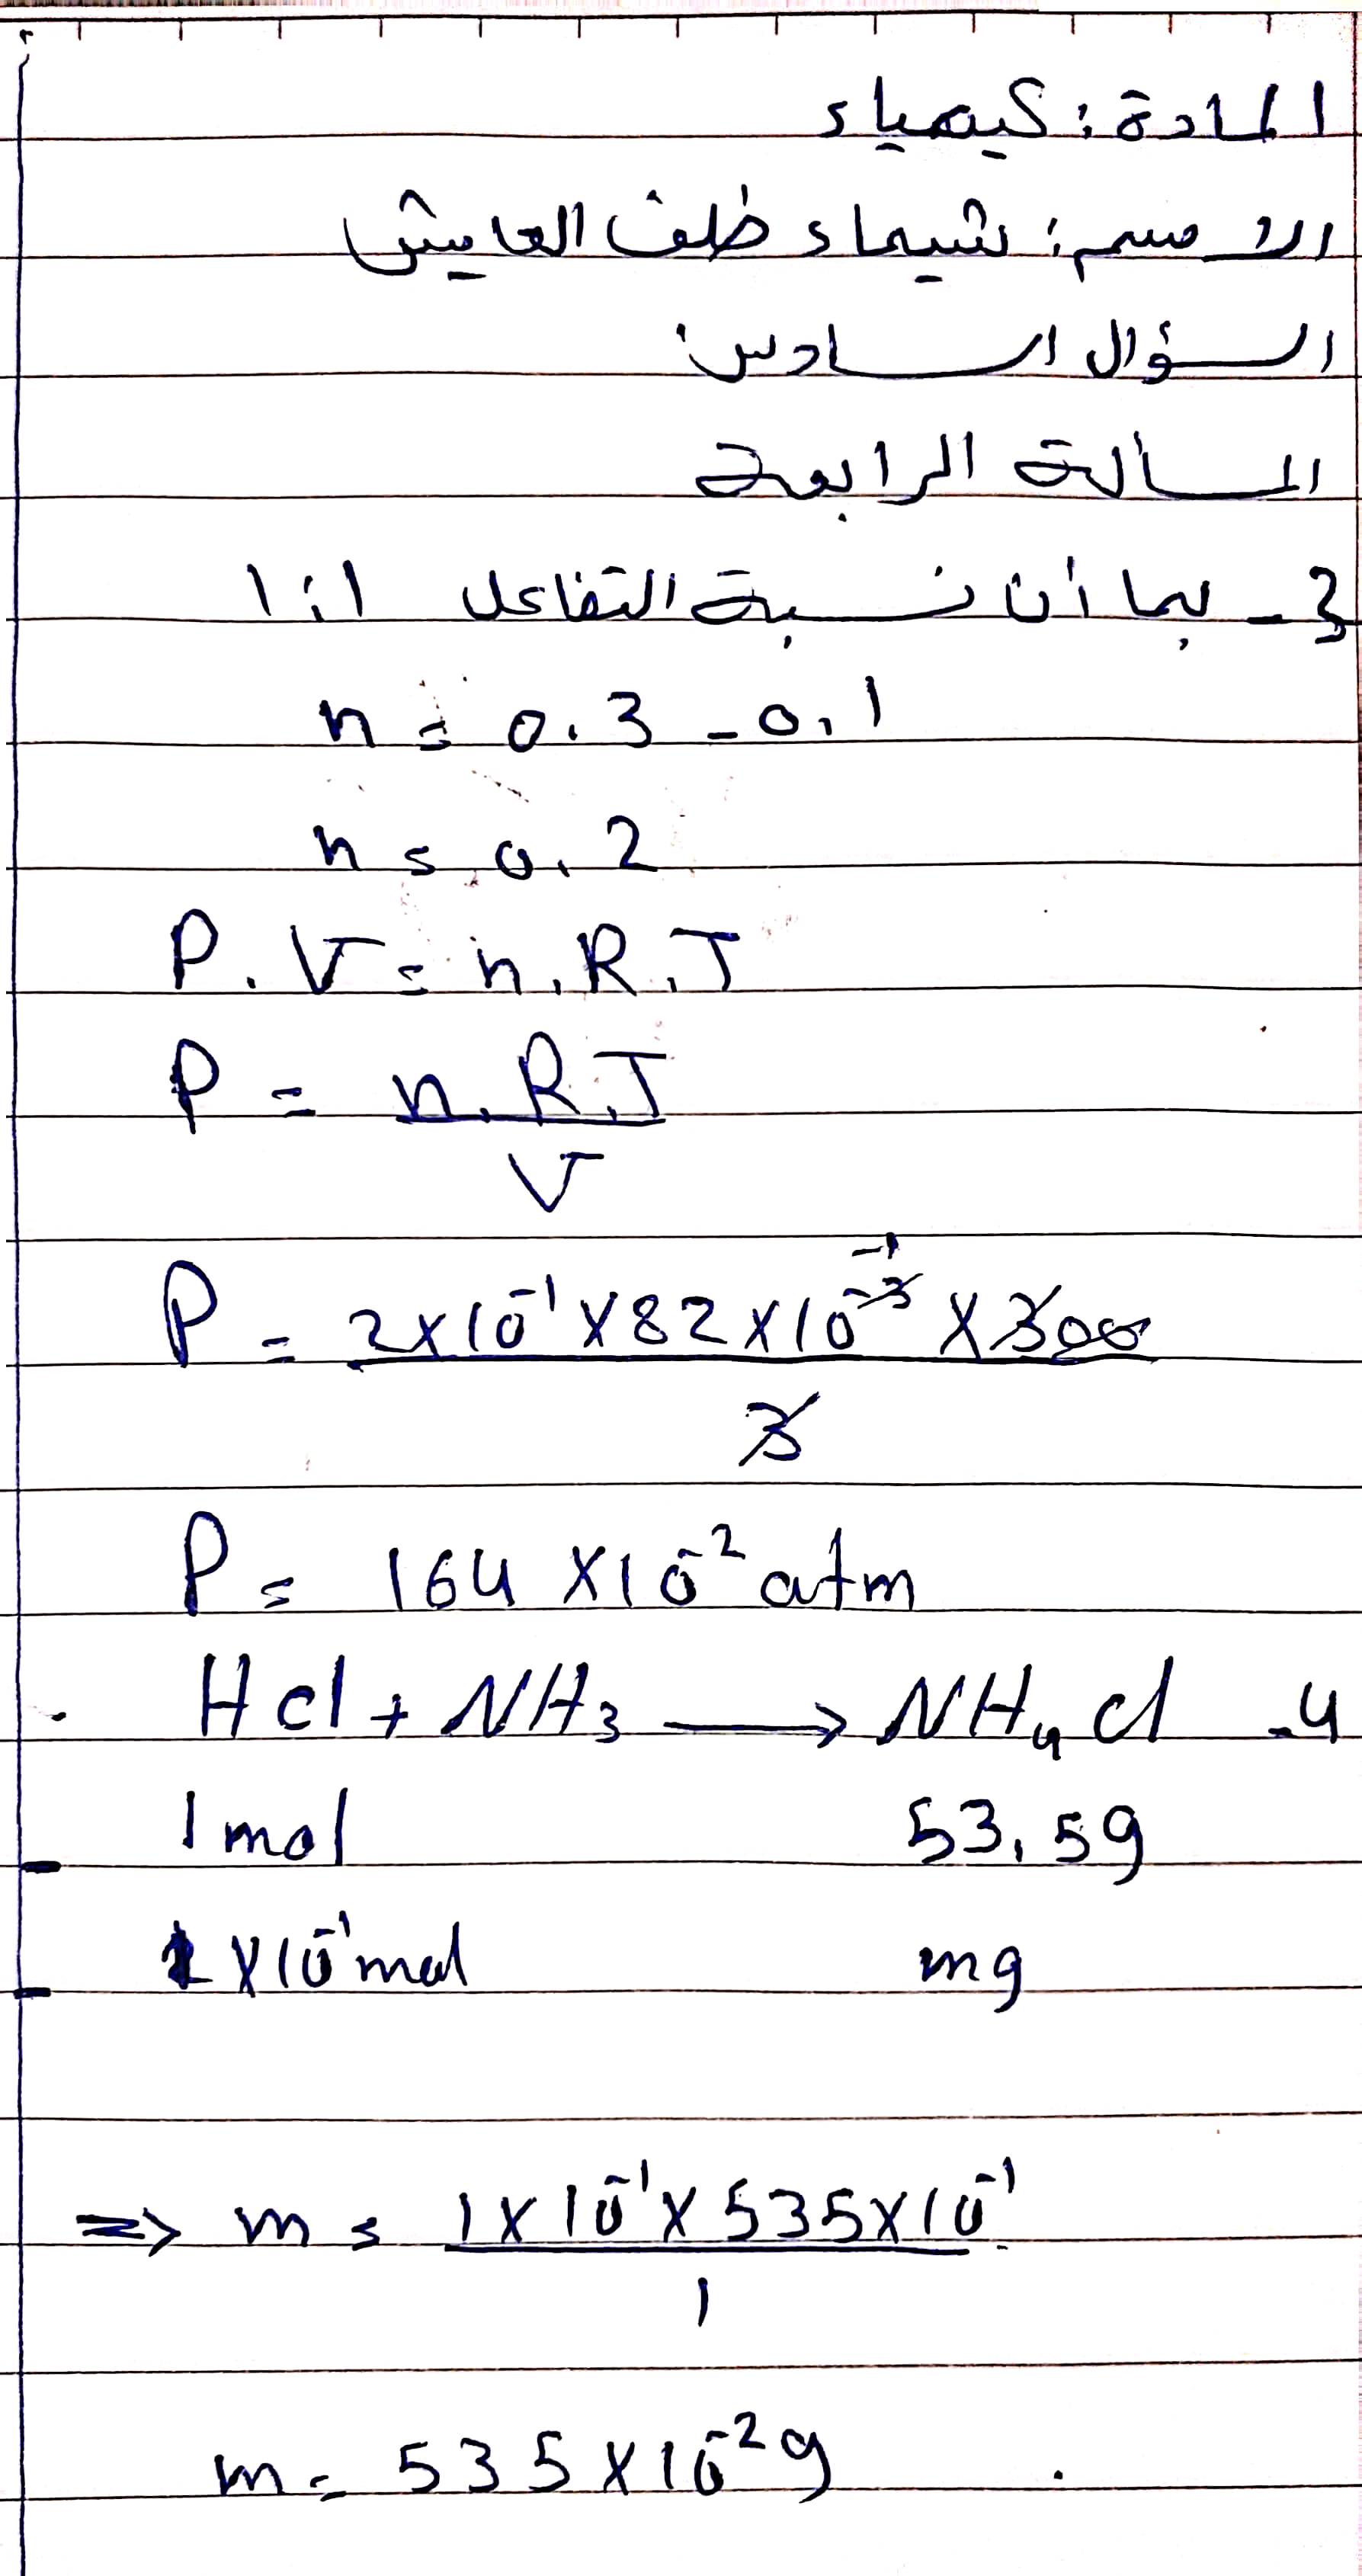 المادة: كيمياء
الاسم: شيماء خلف العايش
السؤال السادس:
المسألة الرابعة
3- بما أن نسبة التفاعل 1:1
n = 0.3 - 0.1
n = 0.2
P.V = n.R.T
P = n.R.T / V
P = 2×10⁻¹×82×10⁻³×300 / 3
-1
P = 164 ×10⁻² atm
HCl + NH₃ → NH₄Cl -4
1 mol 53,5g
1×10⁻¹ mol mg
=> m = 1×10⁻¹×535×10⁻¹ / 1
m = 535×10⁻² g